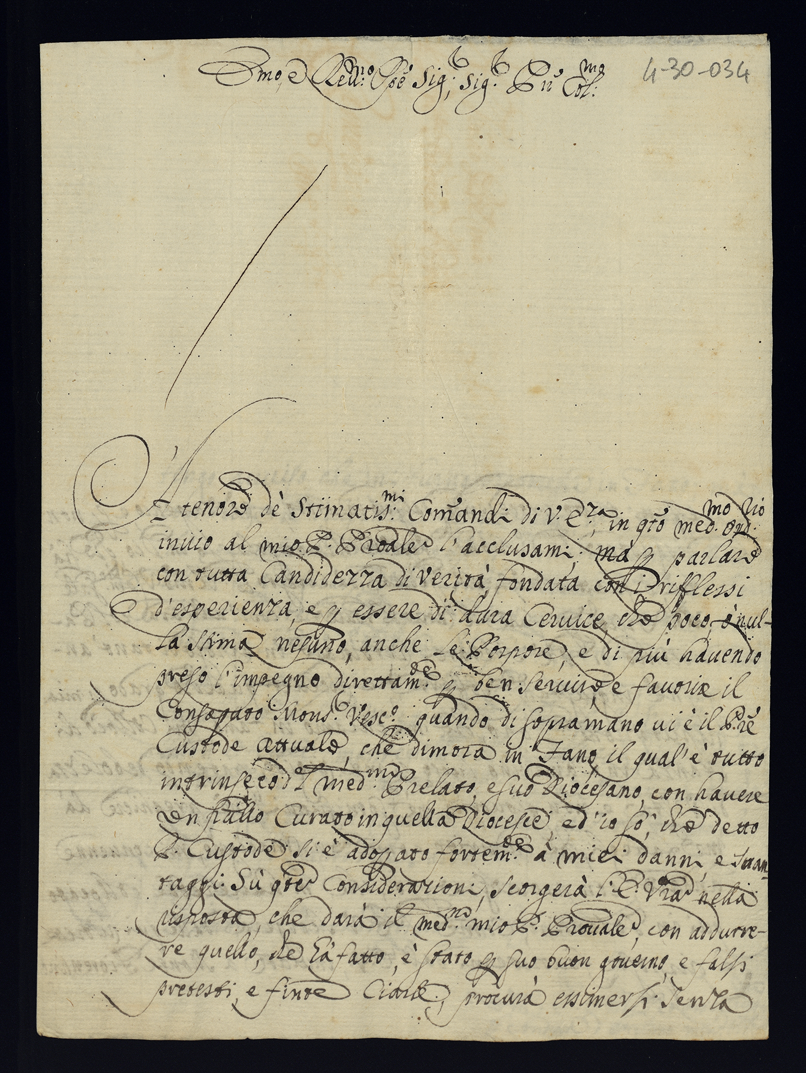 Emo, e Reũ:mo Pre Sig:r, Sig:r Prõ Col:mo
4-30-034
A tenore dè Stimatis:mi Comandi di V.E.za, in qto med.mo Ord.rio
inuio al mio P. Prouale l'acclusami; ma p parlare
con tutta Candidezza di Verità fondata con i riflessi
d'esperienza, e p essere di dura Ceruice, che poco, ò nul-
la stima nesuno, anche le Porpore, e di più hauendo
preso l'impegno direttam.te p ben seruire e fauorire il
Consegato Mons.r Vesc.o quando di sopramano ui è il Prẽ
Custode attuale, che dimora in Fano, il qual'è tutto
intrinseco dl med.mo Prelato, e suo Diocesano, con hauere
un fratello Curato in quella Diocese, ed io sò, che detto
P. Custode si è adoprato fortem.te à miei danni, e suan-
taggi. Sù qte Considerazioni, scorgerà l'E. Vra nella
risposta, che darà il med.mo mio P. Prouale, con addurre-
re quello, che hà fatto, è stato p suo buon gouerno, e falsi
pretesti, e finte Ciarle, procurà essimersi senza